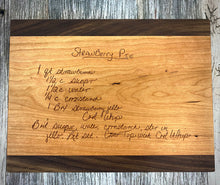 Strawberry Pie
1 qt strawberries
1 c sugar
1 c water
c cornstarch
1 Box strawberry jello
Cool Whip
Boil sugar, water, cornstarch, stir in
jello. Let set. Top with Cool Whip